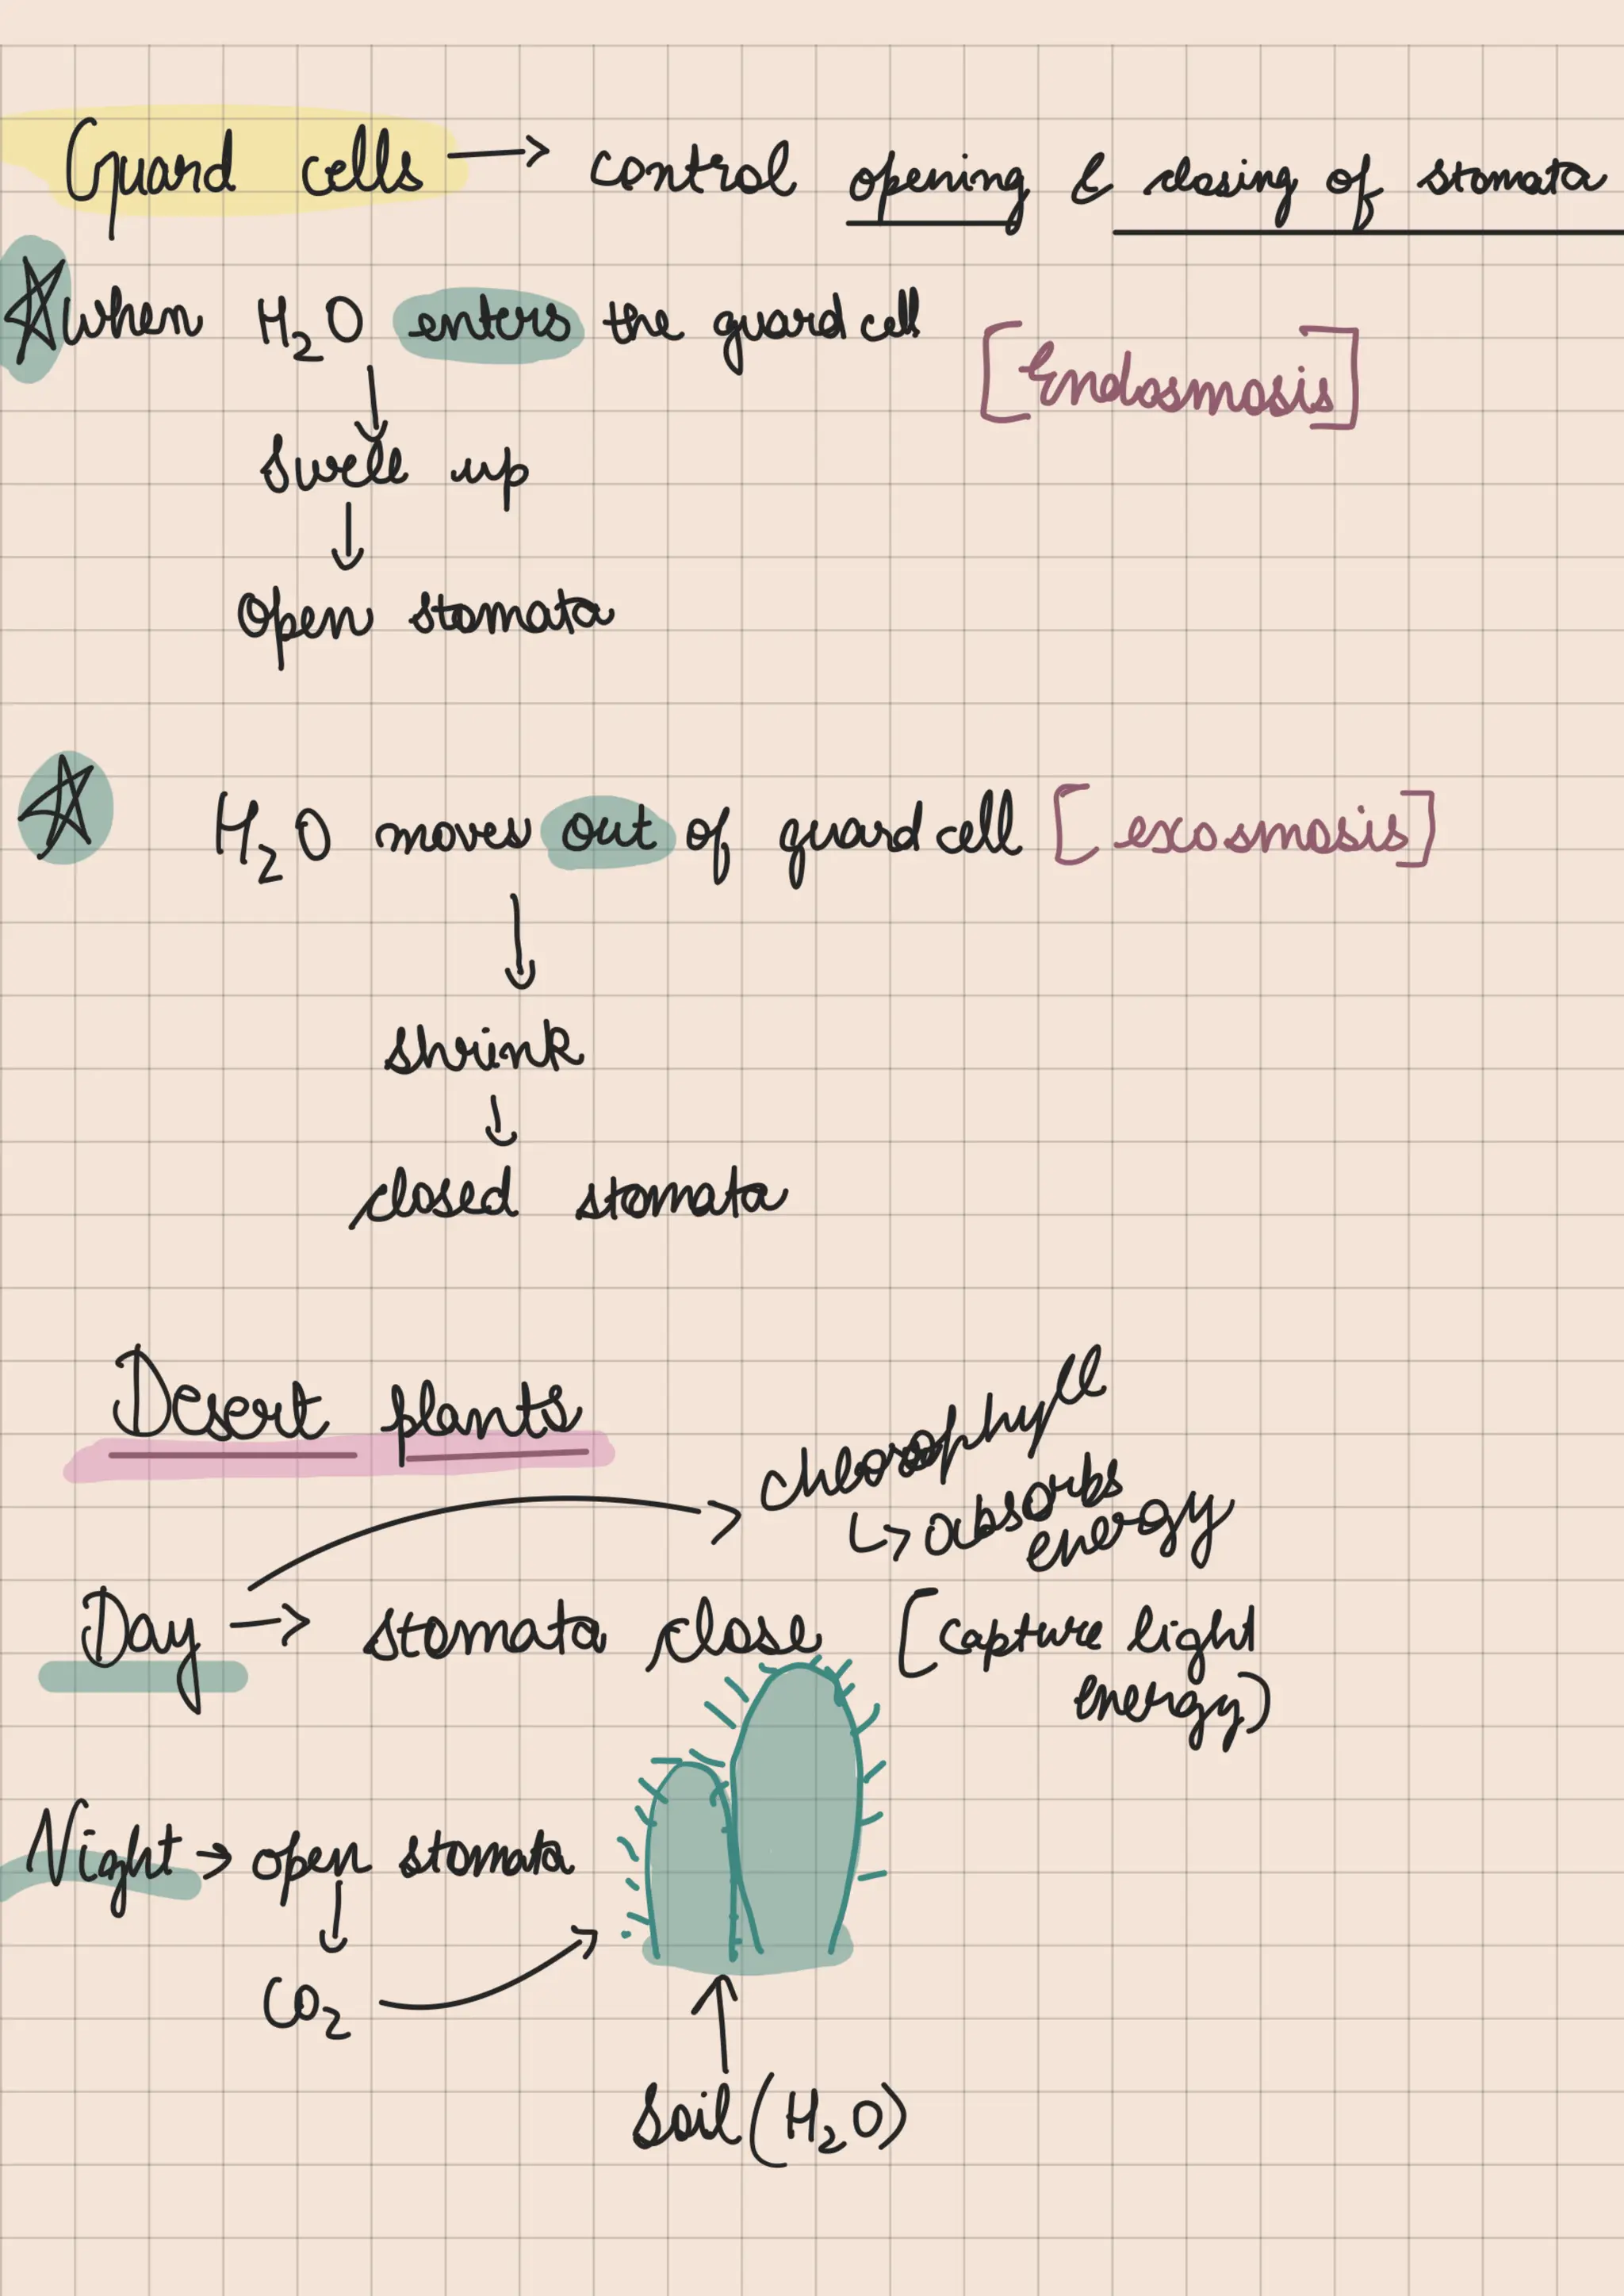 Guard cells → control opening & closing of stomata
When H₂O enters the guard cell
[Endosmosis]
↓
Swell up
↓
Open stomata
H₂O moves out of guard cell [exosmosis]
↓
shrink
↓
closed stomata
Desert plants
→ chlorophyll
↳ absorbs
energy
Day → stomata close [capture light
energy)
Night → open stomata
↓
CO₂ →
↑
Soil (H₂O)